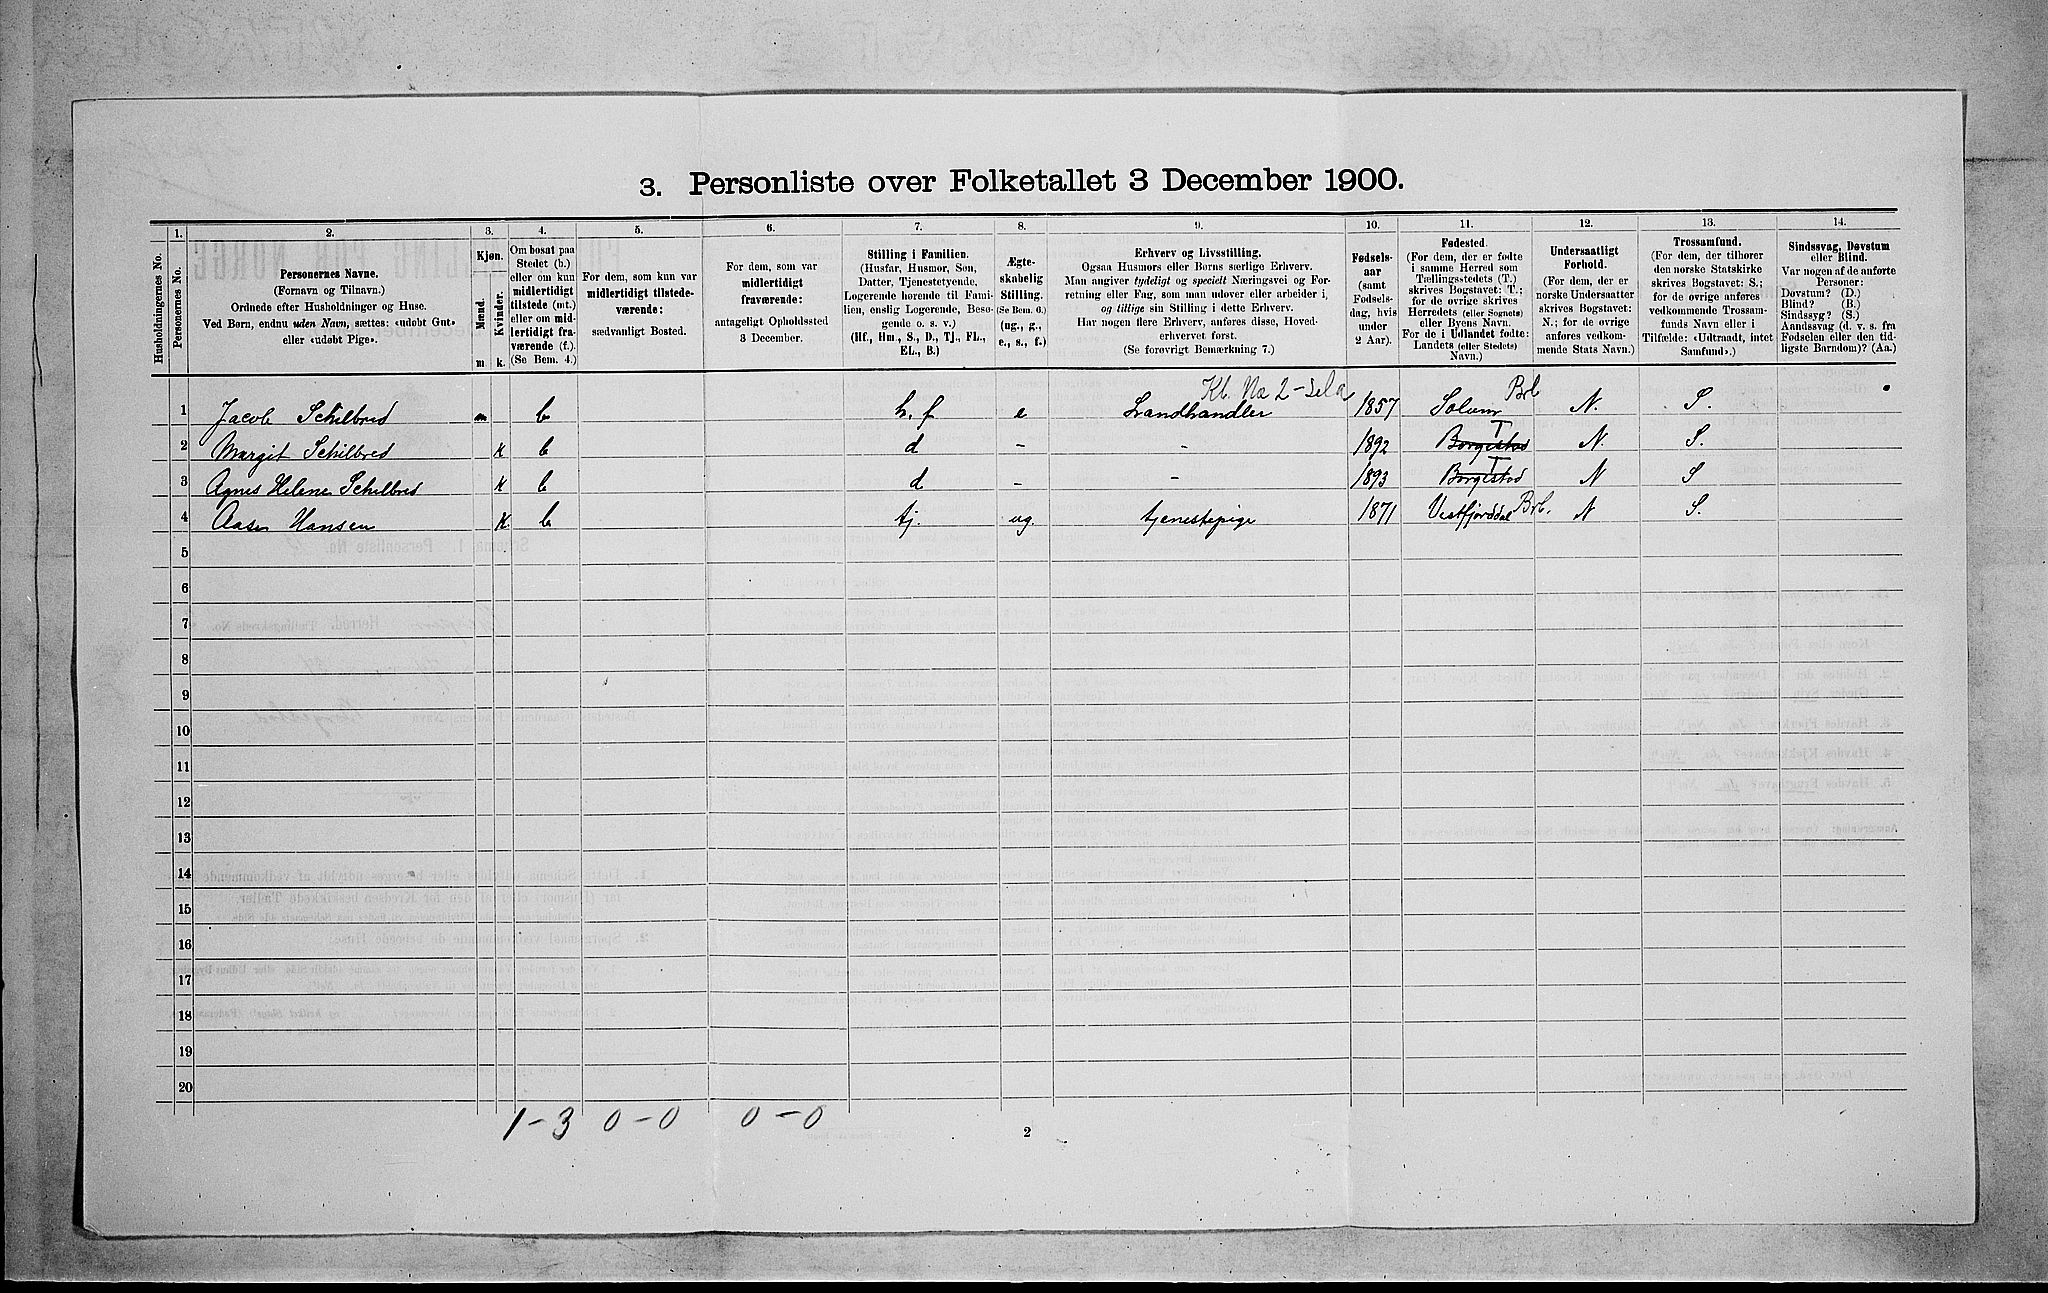 3. Personliste over Folketallet 3 December 1900.
1. 2. 3. 4. 5. 6. 7. 8. 9. 10. 11. 12. 13. 14.
Husholdningernes No.
Personernes No.
Personernes Navne.
(Fornavn og Tilnavn.)
Ordnede efter Husholdninger og Huse.
Ved Børn, endnu uden Navn, sættes: «udøbt Gut»
eller «udøbt Pige».
Kjøn.
Mænd. Kvinder.
m. k.
Om bosat paa
Stedet (b.)
eller om kun
midlertidigt
tilstede (mt.)
eller om mid-
lertidigt fra-
værende (f.)
(Se Bem. 4.)
For dem, som kun var
midlertidigt tilstede-
værende:
sædvanligt Bosted.
For dem, som var
midlertidigt
fraværende:
antageligt Opholdssted
3 December.
Stilling i Familien.
(Husfar, Husmor, Søn,
Datter, Tjenestetyende,
Logerende hørende til Fami-
lien, enslig Logerende, Besø-
gende o. s. v.)
(Hf., Hm., S., D., Tj., FL.,
EL., B.)
Ægte-
skabelig
Stilling.
(Se Bem. 6.)
(ug., g.,
e., s., f.)
Erhverv og Livsstilling.
Ogsaa Husmors eller Børns særlige Erhverv.
Man angiver tydeligt og specielt Næringsvei og For-
retning eller Fag, som man udover eller arbeider i,
og tillige sin Stilling i dette Erhverv.
Har nogen flere Erhverv, anføres disse, Hoved-
erhvervet først.
(Se forøvrigt Bemærkning 7.)
Fødsels-
aar
(samt
Fødsels-
dag, hvis
under
2 Aar).
Fødested.
(For dem, der er fødte
i samme Herred som
Tællingsstedets (T.)
skrives Bogstavet: T.;
for de øvrige skrives
Herredets (eller Sognets)
eller Byens Navn.
For de i Udlandet fødte:
Landets (eller Stedets)
Navn.)
Undersaatligt
Forhold.
(For dem, der er
norske Undersaatter
skrives Bogstavet:
N.; for de øvrige
anføres vedkom-
mende Stats Navn.)
Trossamfund.
(For dem, der tilhører
den norske Statskirke
skrives Bogstavet: S.;
for de øvrige anføres
vedkommende Trossam-
funds Navn eller i
Tilfælde: «Udtraadt, intet
Samfund».)
Sindssvag, Døvstum
eller Blind.
Var nogen af de anførte
Personer:
Døvstum? (D.)
Blind? (B.)
Sindssyg? (S.)
Aandssvag (d. v. s. fra
Fødselen eller den tid-
ligste Barndom)? (Aa.)
Kl. No 2
1 Jacob Schilbred m b h. f e Landhandler 1857 Solum Brb N. S.
2 Margit Schilbred k b d - - 1892 Borgestad T N. S.
3 Agnes Helene Schilbred k b d - - 1893 Borgestad T N S
4 Aase Hansen k b tj. ug. tjenestepige 1871 Vestfjorddal Brb. N S.
5
6
7
8
9
10
11
12
13
14
15
16
17
18
19
20
1-3 0-0 0-0
2